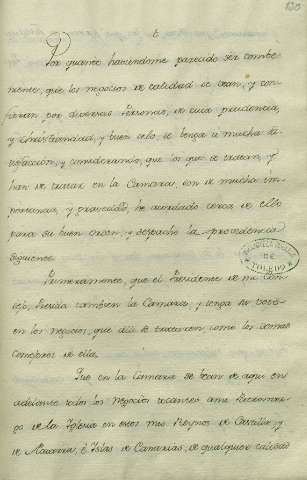 Por quanto haviendome parecido ser combe-
niente, que los negocios de calidad se vean, y con-
fieran por diversas Personas, de cuia prudencia,
y christiandad, y buen celo, se tenga la mucha sa-
tisfacción, y considerando, que los que se tratan, y
han de tratar en la Camara, son de mucha im-
portancia, y gravedad, he acordado cerca de ello
para su buen orden, y despacho la providencia
siguiente.
Primeramente, que el Presidente de mi Con-
sejo, Presida tambien la Camara, y tenga su voto
en los negocios, que alli se trataren, como los demas
Consejeros de ella.
Que en la Camara se vean de aqui en
adelante todos los negocios tocantes a mi Patronaz-
go de la Iglesia en estos mis Reynos de Castilla, y
de Navarra, e Islas de Canarias, de qualquier calidad
DE
TOLEDO